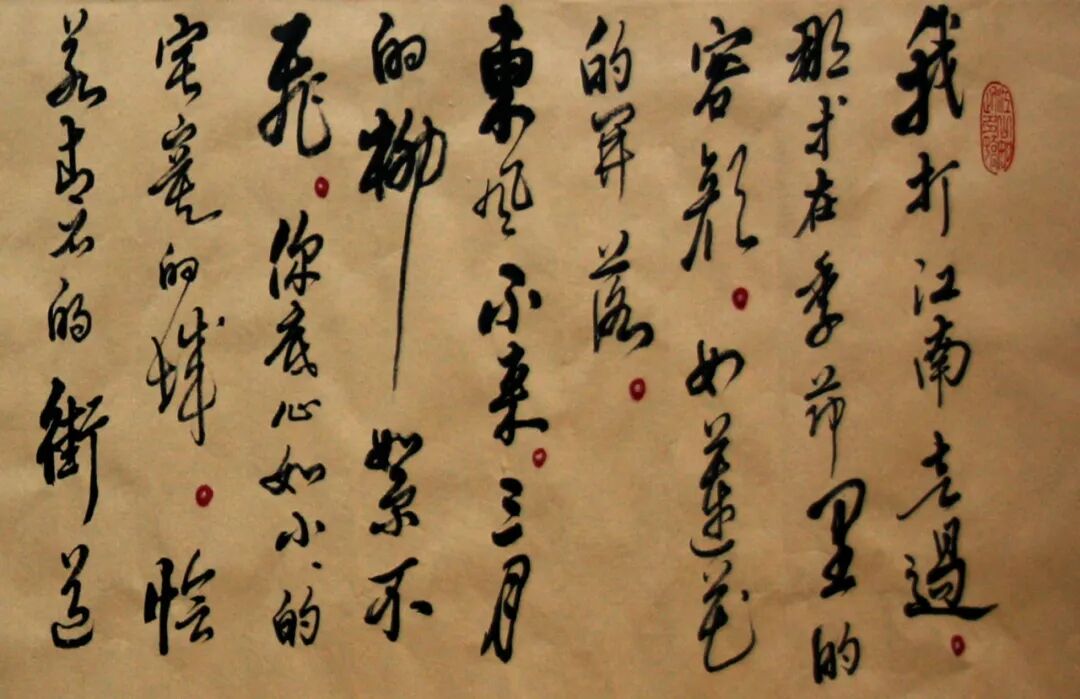 我打江南走過。
那等在季节里的
容颜。如蓮花
的開落。
東风不来。三月
的柳絮不
飛。你底心如小小的
寂寞的城。恰
若青石的街道